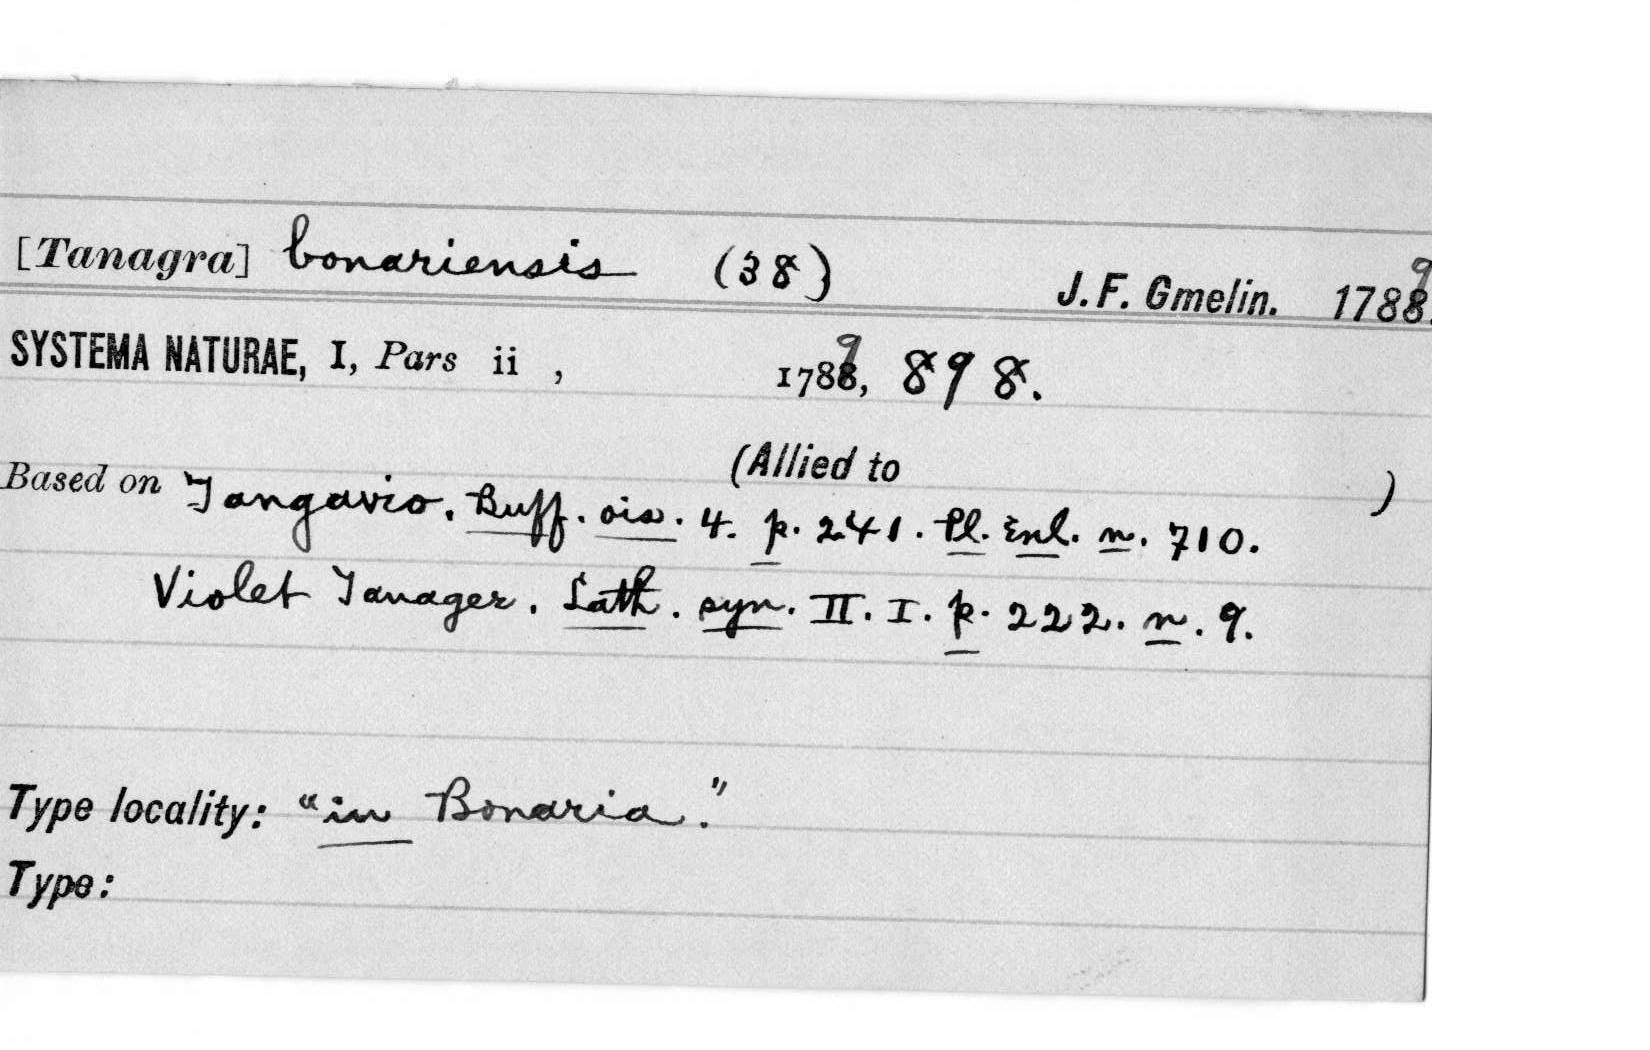 [Tanagra] bonariensis (38) J. F. Gmelin. 1789.
SYSTEMA NATURAE, I, Pars ii , 1789, 898.
(Allied to )
Based on Tangavio. Buff. ois. 4. p. 241. Pl. Enl. n. 710.
Violet Tanager. Lath. syn. II. I. p. 222. n. 9.
Type locality: "in Bonaria."
Type: